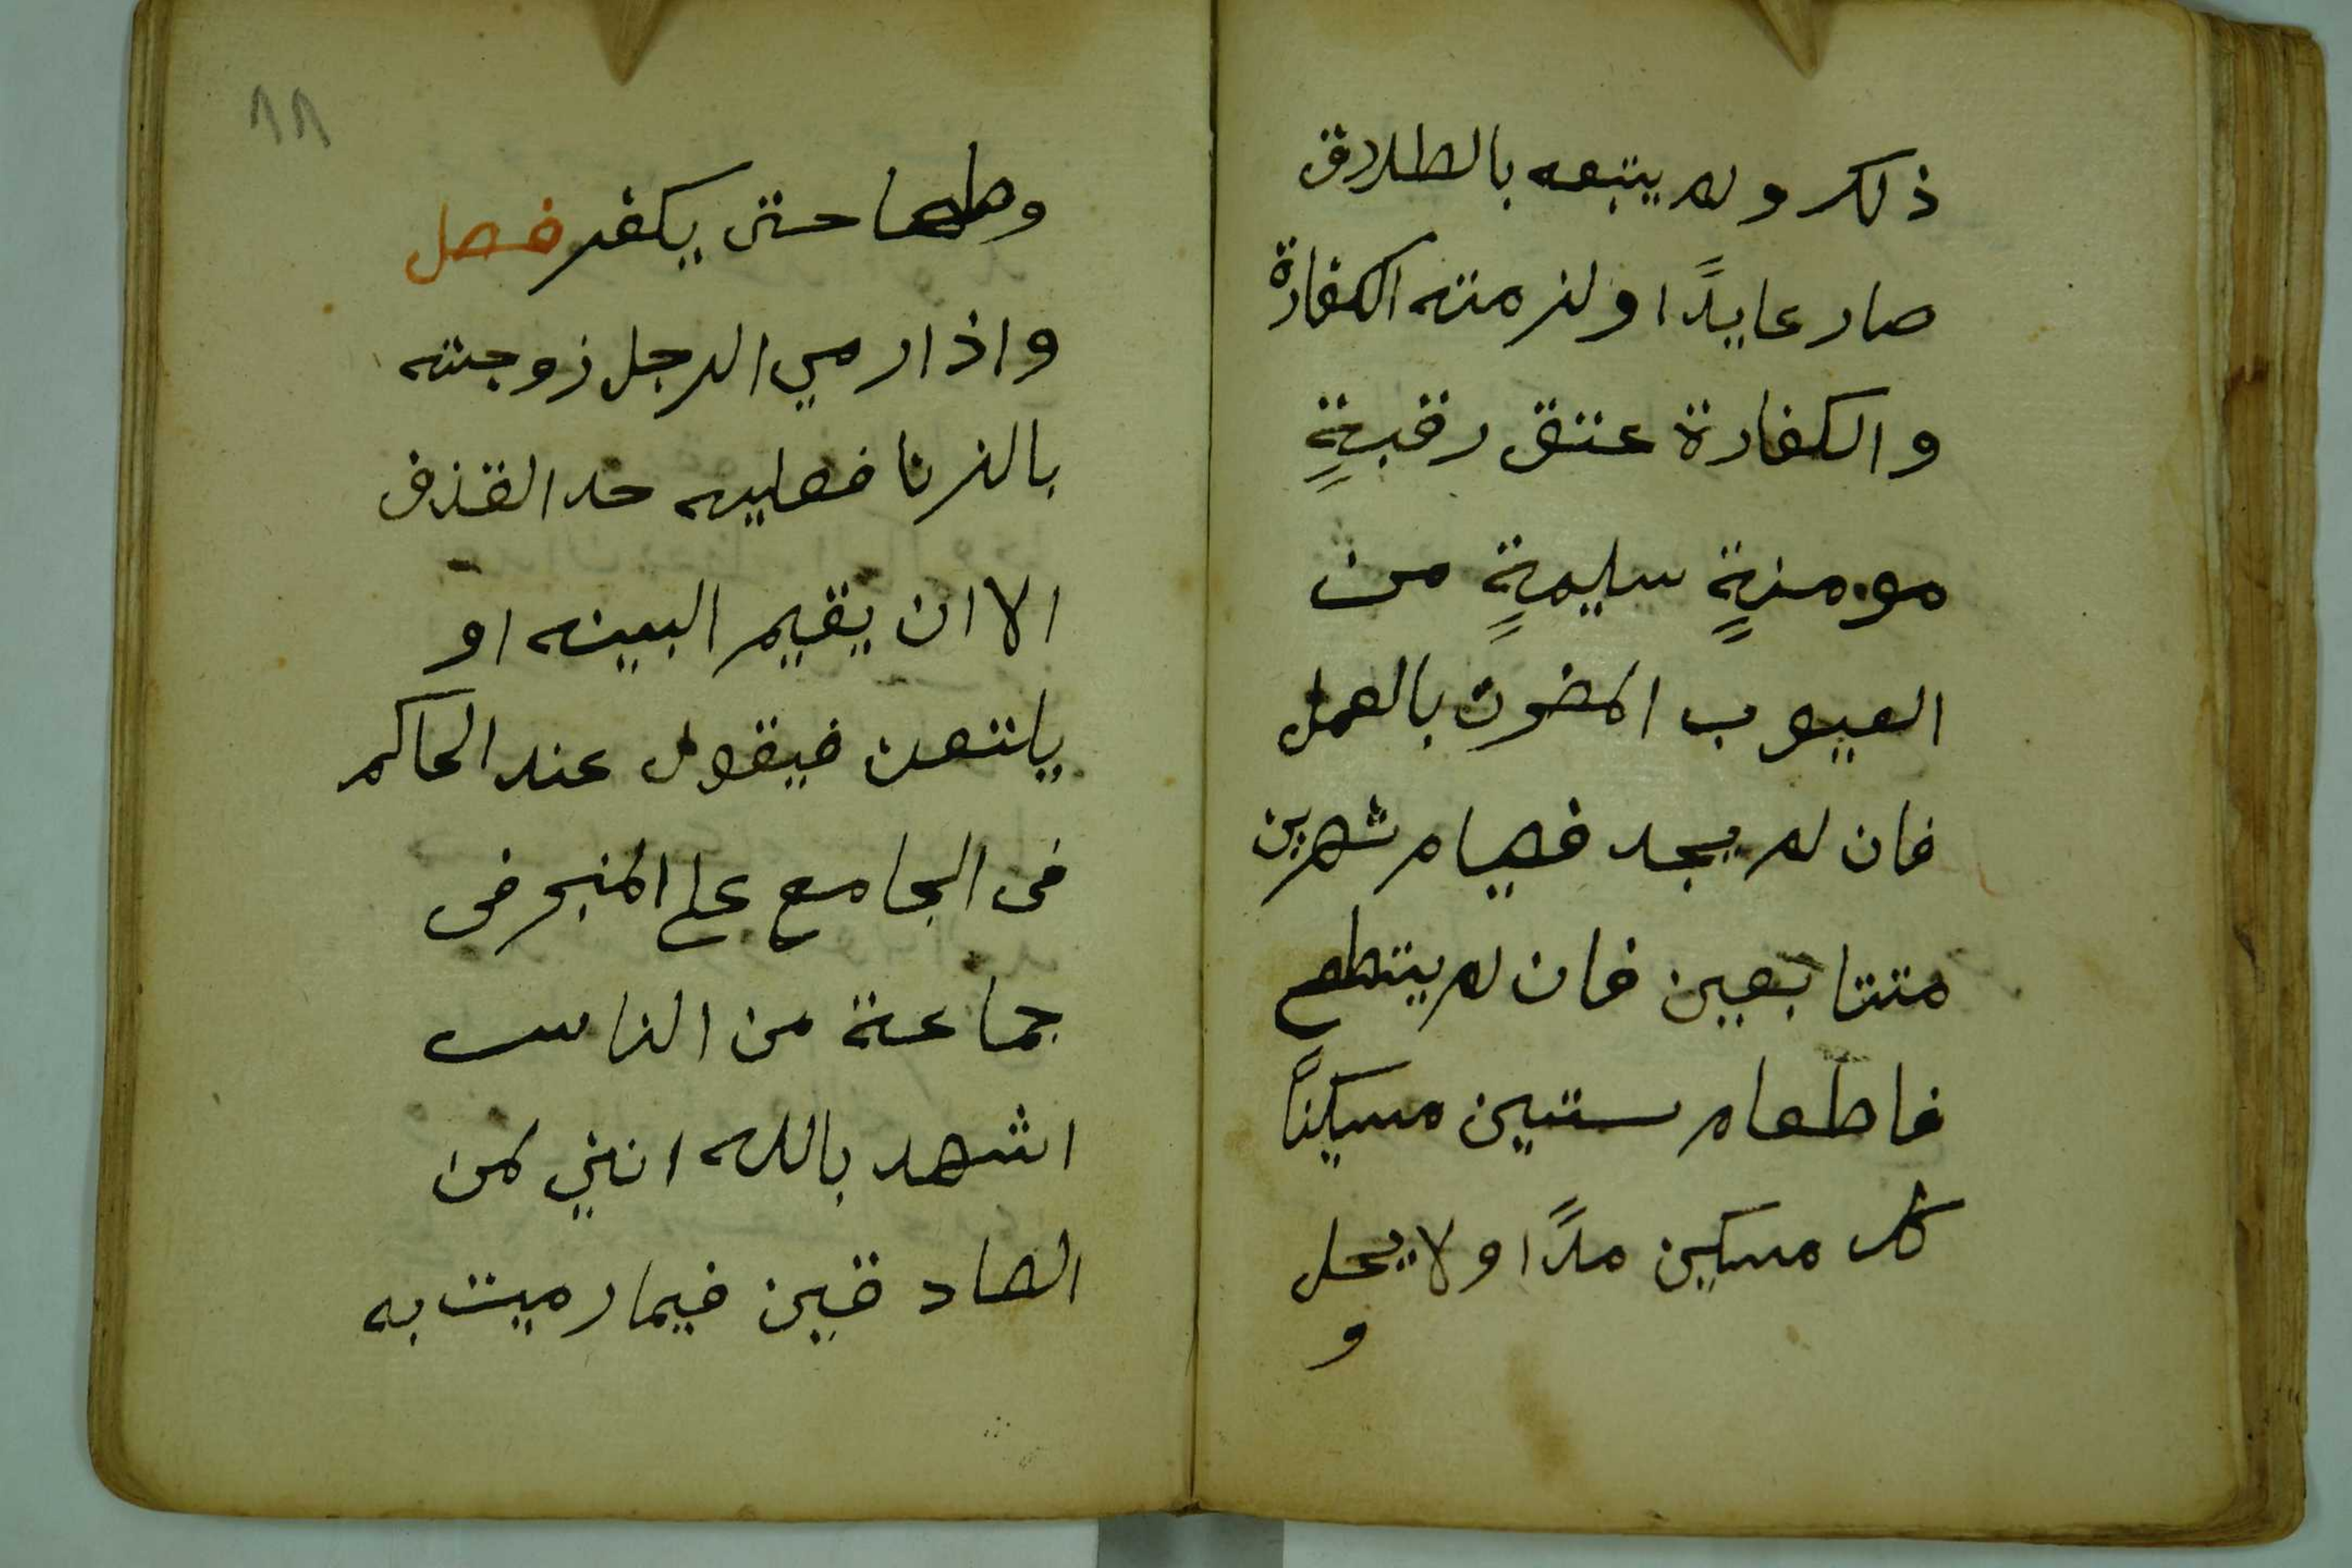 ذلك ولم يتبعه بالطلاق
صار عايدًا ولزمته الكفارة
والكفارة عتق رقبةٍ
مومنةٍ سليمةٍ من
العيوب المضرت بالعمل
فان لم يجد فصيام شهرين
متتابعين فان لم يتطع
فاطعام ستين مسكينًا
كل مسكين مدًا ولا يحل
و
٨٨
وطها حتى يكفر فصل
واذا رمي الرجل زوجته
بالزنا فعليه حد القذف
الا ان يقيم البينه او
يلتعن فيقول عند الحاكم
فى الجامع على المنبر فى
جماعة من الناس
اشهد بالله انني لمن
الصادقين فيما رميت به